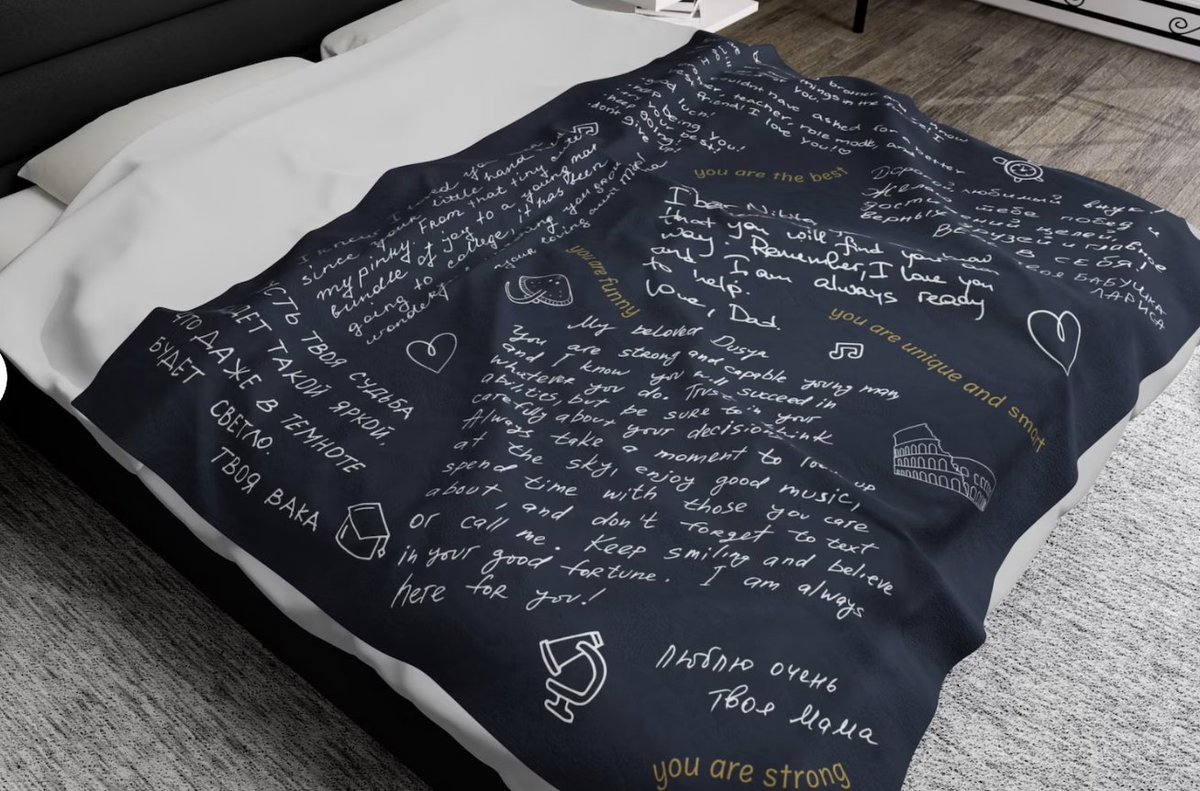 brother
things in the
you.
now
I
dn't have asked for a
teacher, role model, and better
friend! I love
you!♡
luck!
being you!
going!
your best!
don't give up!
you are the best
Дорогой любимый внук!
Желаю тебе побед и
достижений целей,
верных друзей и главное
ВЕРЬ В СЕБЯ!
твоя БАБУШКА
ЛАРИСА
I
since your little hand
my pinky. From that tiny
bundle of joy to a young man
going to college, it has been
you grow
your loving aunt Mila
you are funny
Dear Nikita,
that you will find your own
way. Remember, I love you
and I am always ready
to help.
Love, Dad.
you are unique and smart
My beloved Dusya
You are strong and capable young man
and I know you will succeed in
whatever you do. Trust in your
abilities, but be sure to think
carefully about your decisions.
Always take a moment to look up
at the sky, enjoy good music,
spend time with those you care
about, and don't forget to text
or call me. Keep smiling and believe
in your good fortune. I am always
here for you!
ПУСТЬ ТВОЯ СУДЬБА
БУДЕТ ТАКОЙ ЯРКОЙ,
ЧТО ДАЖЕ В ТЕМНОТЕ
БУДЕТ
СВЕТЛО.
ТВОЯ ВАКА
Люблю очень
Твоя мама
you are strong